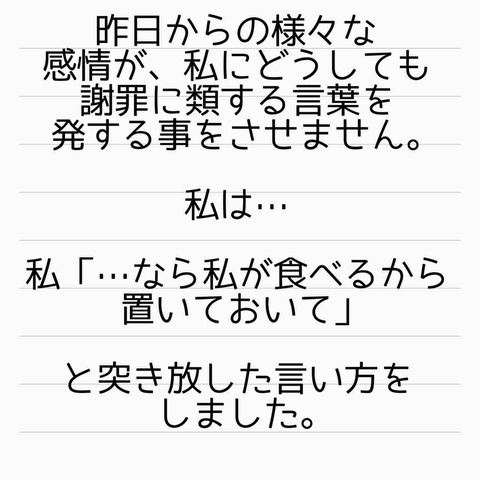 昨日からの様々な
感情が、私にどうしても
謝罪に類する言葉を
発する事をさせません。
私は…
私「…なら私が食べるから
置いておいて」
と突き放した言い方を
しました。